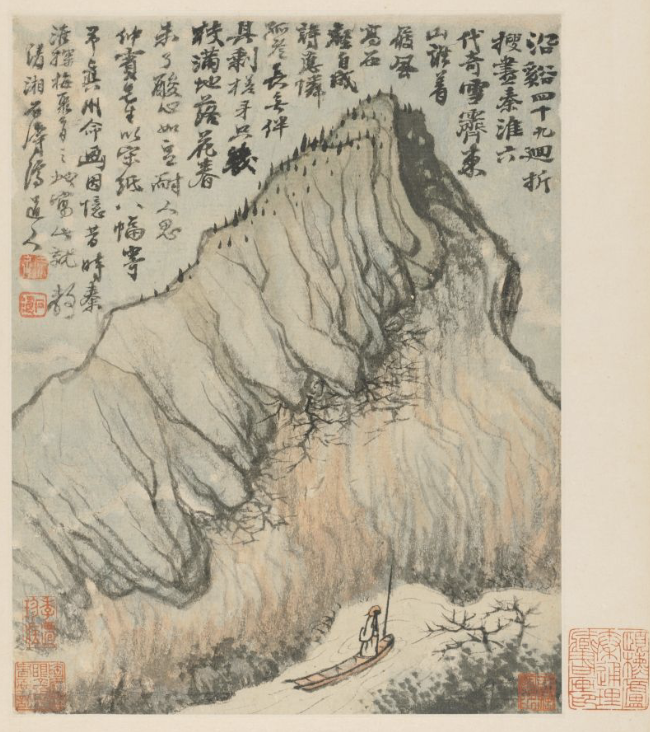 沿谿四十九迴折
搜盡秦淮六
代奇雪霽東
山誰着
屐風
高西
壑自成
詩應憐
孤客長無伴
且剩槎牙只幾
枝滿地落花春
未了酸心如豆耐人思
仲賓先生以宋紙八幅寄
予真州命畫因憶昔時秦
淮探梅之地寫此就教
清湘石濤濟道人